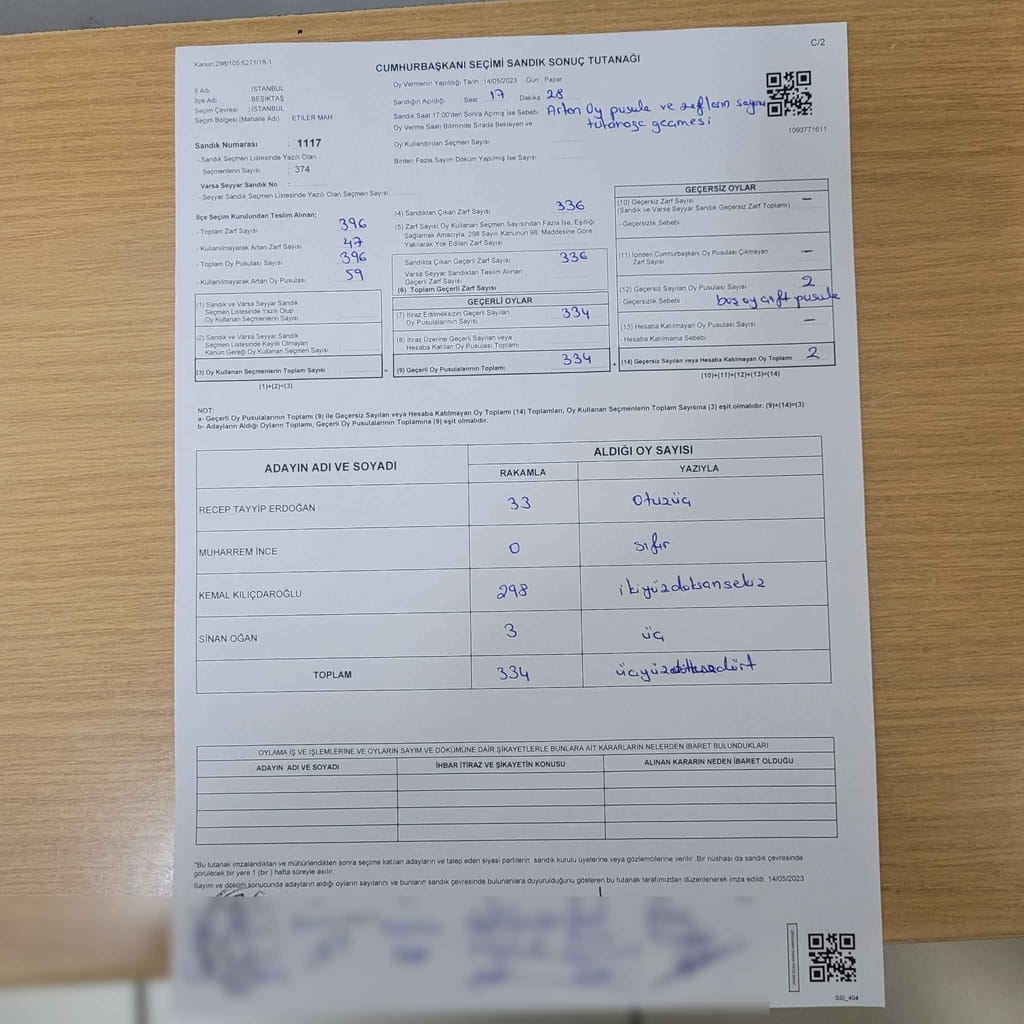 Kanun:298/105.6271/18-1
C/2
CUMHURBAŞKANI SEÇİMİ SANDIK SONUÇ TUTANAĞI
İl Adı : İSTANBUL
İlçe Adı : BEŞİKTAŞ
Seçim Çevresi : İSTANBUL
Seçim Bölgesi (Mahalle Adı) : ETİLER MAH
Oy Vermenin Yapıldığı Tarih :14/05/2023 Gün : Pazar
Sandığın Açıldığı Saat 17 Dakika 28
Sandık Saat 17:00'den Sonra Açmış İse Sebebi Artan Oy pusula ve zarfların sayım
tutanağa geçmesi
Oy Verme Saati Bitiminde Sırada Bekleyen ve
Oy Kullandırılan Seçmen Sayısı
Birden Fazla Sayım Döküm Yapılmış İse Sayısı
1093771611
Sandık Numarası : 1117
- Sandık Seçmen Listesinde Yazılı Olan
Seçmenlerin Sayısı : 374
Varsa Seyyar Sandık No :
- Seyyar Sandık Seçmen Listesinde Yazılı Olan Seçmen Sayısı:
İlçe Seçim Kurulundan Teslim Alınan;
- Toplam Zarf Sayısı 396
- Kullanılmayarak Artan Zarf Sayısı 47
- Toplam Oy Pusulası Sayısı 396
- Kullanılmayarak Artan Oy Pusulası 59
(1) Sandık ve Varsa Seyyar Sandık
Seçmen Listesinde Yazılı Olup
Oy Kullanan Seçmenlerin Sayısı
(2) Sandık ve Varsa Seyyar Sandık
Seçmen Listesinde Kayıtlı Olmayan
Kanun Gereği Oy Kullanan Seçmen Sayısı
(3) Oy Kullanan Seçmenlerin Toplam Sayısı
(1)+(2)=(3)
(4) Sandıktan Çıkan Zarf Sayısı 336
(5) Zarf Sayısı Oy Kullanan Seçmen Sayısından Fazla İse, Eşitliği
Sağlamak Amacıyla, 298 Sayılı Kanunun 98. Maddesine Göre
Yakılarak Yok Edilen Zarf Sayısı
Sandıkta Çıkan Geçerli Zarf Sayısı 336
Varsa Seyyar Sandıktan Teslim Alınan
Geçerli Zarf Sayısı
(6) Toplam Geçerli Zarf Sayısı
GEÇERLİ OYLAR
(7) İtiraz Edilmeksizin Geçerli Sayılan
Oy Pusulalarının Sayısı 334
(8) İtiraz Üzerine Geçerli Sayılan veya
Hesaba Katılan Oy Pusulası Toplamı
(9) Geçerli Oy Pusulalarının Toplamı 334
=
+
GEÇERSİZ OYLAR
(10) Geçersiz Zarf Sayısı —
(Sandık ve Varsa Seyyar Sandık Geçersiz Zarf Toplamı)
- Geçersizlik Sebebi
(11) İçinden Cumhurbaşkanı Oy Pusulası Çıkmayan
Zarf Sayısı —
(12) Geçersiz Sayılan Oy Pusulası Sayısı 2
- Geçersizlik Sebebi boş oy çift pusula
(13) Hesaba Katılmayan Oy Pusulası Sayısı —
- Hesaba Katılmama Sebebi
(14) Geçersiz Sayılan veya Hesaba Katılmayan Oy Toplamı 2
(10)+(11)+(12)+(13)=(14)
NOT:
a- Geçerli Oy Pusulalarının Toplamı (9) ile Geçersiz Sayılan veya Hesaba Katılmayan Oy Toplamı (14) Toplamları, Oy Kullanan Seçmenlerin Toplam Sayısına (3) eşit olmalıdır. (9)+(14)=(3)
b- Adayların Aldığı Oyların Toplamı, Geçerli Oy Pusulalarının Toplamına (9) eşit olmalıdır.
ADAYIN ADI VE SOYADI
ALDIĞI OY SAYISI
RAKAMLA YAZIYLA
RECEP TAYYİP ERDOĞAN 33 Otuzüç
MUHARREM İNCE 0 sıfır
KEMAL KILIÇDAROĞLU 298 ikiyüzdoksansekiz
SİNAN OĞAN 3 üç
TOPLAM 334
OYLAMA İŞ VE İŞLEMLERİNE VE OYLARIN SAYIM VE DÖKÜMÜNE DAİR ŞİKAYETLERLE BUNLARA AİT KARARLARIN NELERDEN İBARET BULUNDUKLARI
ADAYIN ADI VE SOYADI İHBAR İTİRAZ VE ŞİKAYETİN KONUSU ALINAN KARARIN NEDEN İBARET OLDUĞU
*Bu tutanak imzalandıktan ve mühürlendikten sonra seçime katılan adayların ve talep eden siyasi partilerin sandık kurulu üyelerine veya gözlemcilerine verilir. Bir nüshası da sandık çevresinde
görülecek bir yere 1 (bir ) hafta süreyle asılır.
Sayım ve döküm sonucunda adayların aldığı oyların sayılarını ve bunların sandık çevresinde bulunanlara duyurulduğunu gösteren bu tutanak tarafımızdan düzenlenerek imza edildi. 14/05/2023
SSI_404